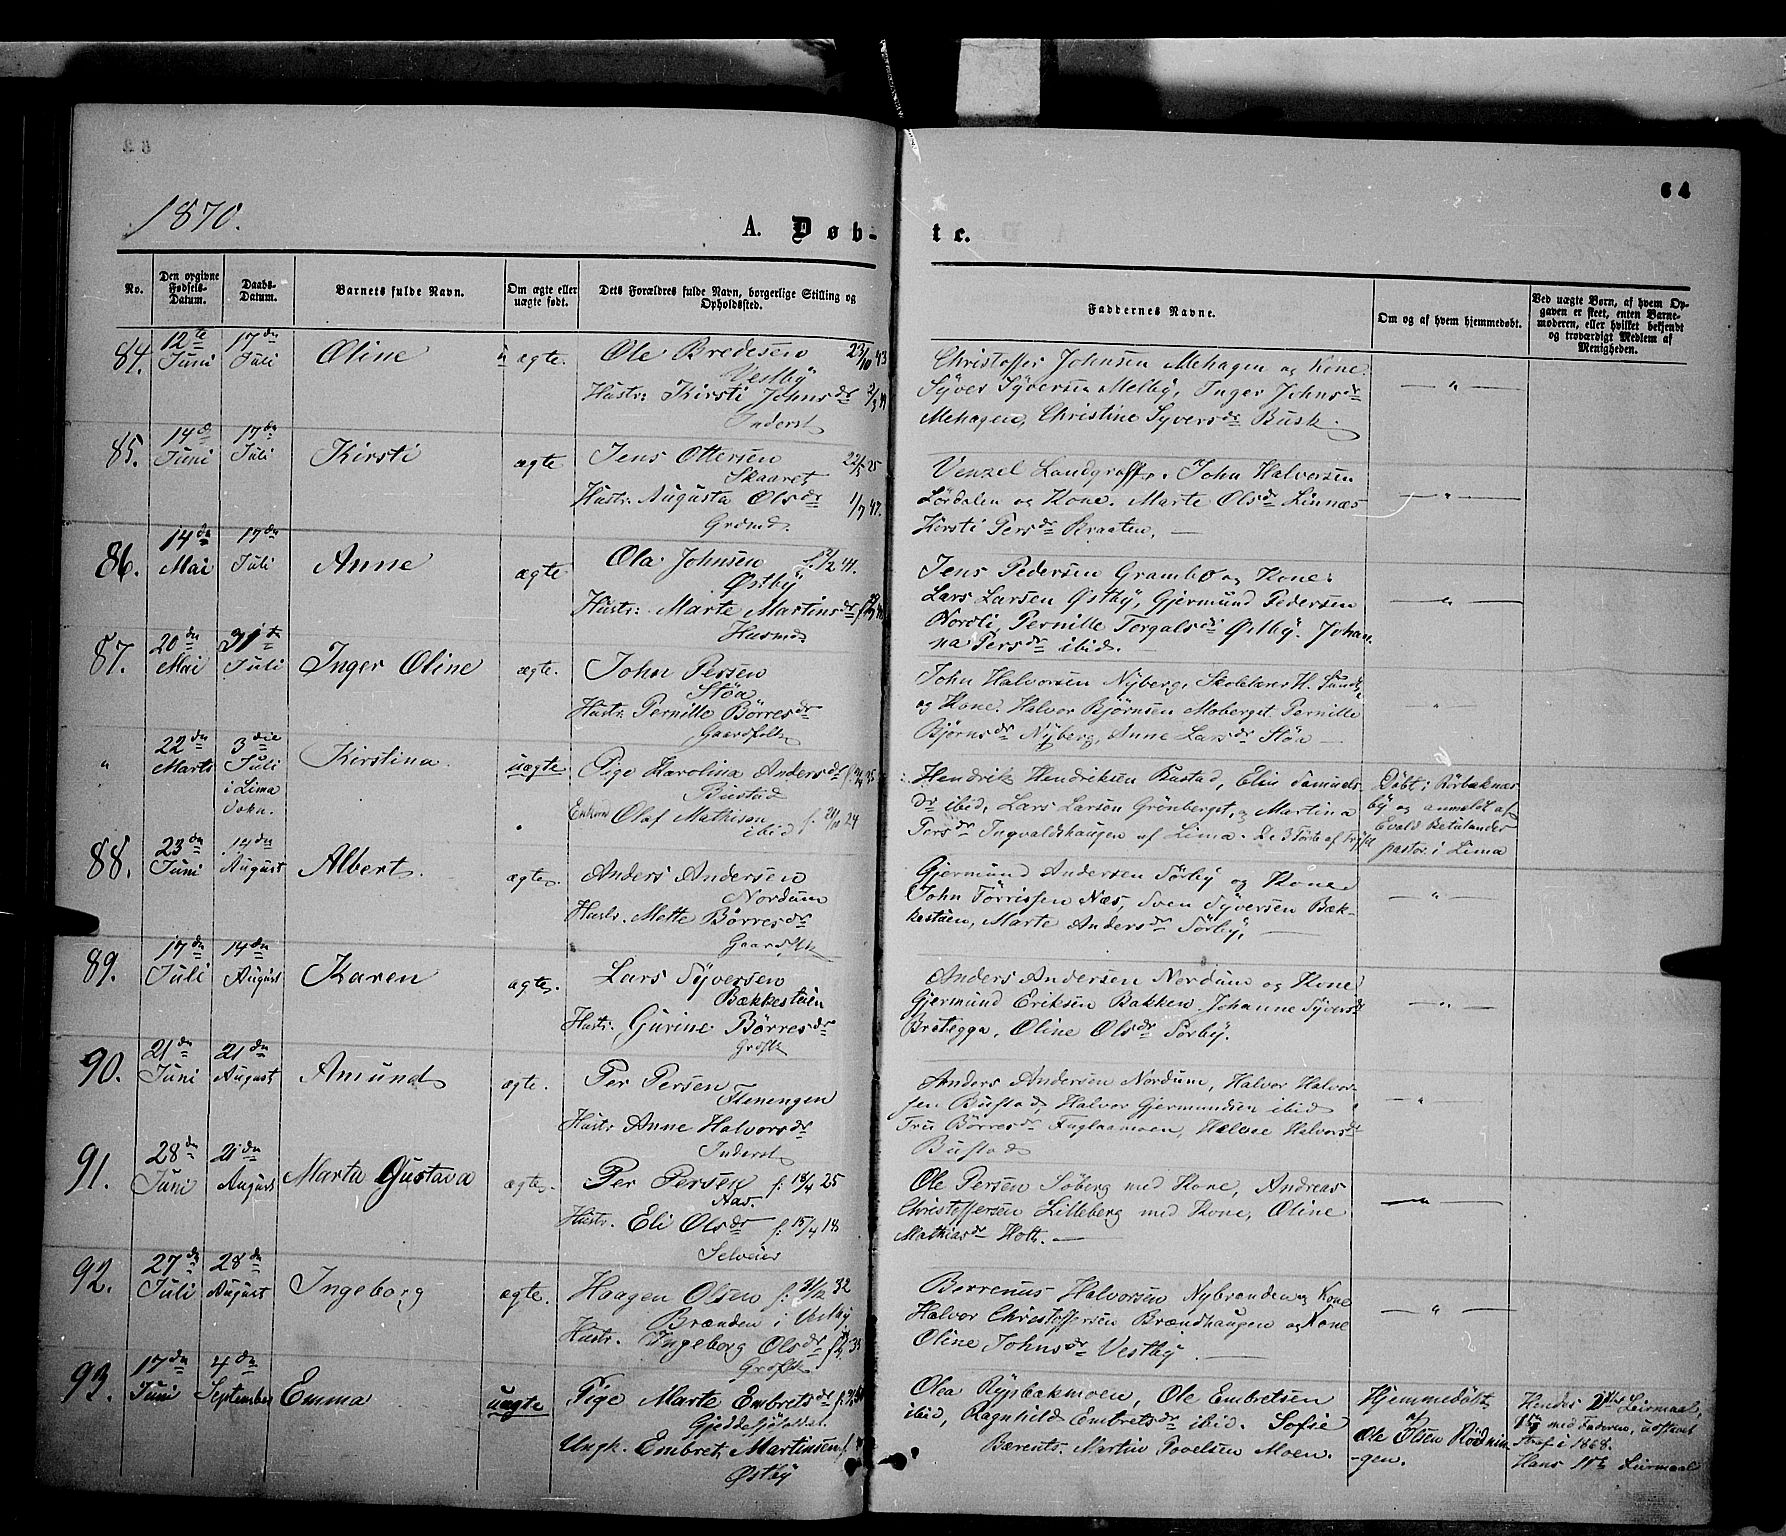 64
1870.
A. Døb-
te.
No.
Den opgivne Fødsels-Datum.
Daabs-Datum.
Barnets fulde Navn.
Om ægte eller uægte født.
Dets Forældres fulde Navn, borgerlige Stilling og Opholdssted.
Faddernes Navne.
Om og af hvem hjemmedøbt.
Ved uægte Børn, af hvem Opgaven er skeet, enten Barnemoderen, eller hvilket bekjendt og troværdigt Medlem af Menigheden.
84.
12te Juni
17de Juli
Oline
ægte.
Ole Bredesen 23/10 43
Vestby
Hustr: Kirsti Johnsdr
Inderst
Christoffer Johnsen Mehagen og Kone.
Syver Syversen Melby, Inger Johnsdr
Mehagen, Christine Syversdr Busk.
— " —
85.
14de Juni
17de Juli
Kirsti
ægte
Jens Ottersen 22/5 25
Skaaret
Hustr: Augusta Olsdr 1/7 47.
Grdmd.
Venzel Landgraff. John Halvorsen
Lørdalen og Kone. Marte Olsdr Linnæs
Kirsti Persdr Braaten. —
— " —
86.
14de Mai
17de Juli
Anne
ægte
Ola Johnsen
Østby
Hustr: Marte Martinsdr
Husmd.
Jens Pedersen Grambo og Kone.
Lars Larsen Østby, Gjermund Pedersen
Nordli, Pernille Torgalsdr Østby. Johan-
na Persdr ibid. —
— " —
87.
20de Mai
31te Juli
Inger Oline
ægte.
John Persen
Støa
Hustr: Pernille Børresdr
Gaardfolk
John Halvorsen Nyberg, Skolelærer H. Sund
og Kone. Halvor Bjørnsen Moberget. Pernille
Bjørnsdr Nyberg, Anne Larsdr Støa —
"
"
22de Marts
3die Juli i Lima Sokn.
Kirstina
uægte
Pige Karolina Andersdr
Bustad
Enkmd Olaf Mathison
ibid
Hendrik Hendriksen Bustad, Elin Samuels-
dr ibid, Lars Larsen Grönberget, og Martina
Persdr Ingvaldshaugen af Lima. De 3 første af Trysil
Døbt i Rörbæknæs-
by og anmeldt af
Evald Betulander
pastor i Lima
88.
23de Juni
14de August
Albert
ægte.
Anders Andersen
Nordum
Hustr. Mette Børresdr
Gaardfolk
Gjermund Andersen Sørby og Kone
John Törrissen Næs, Sven Syversen Bæk-
kestuen, Marte Andersdr Sørby. —
— " —
89.
17de Juli
14de August
Karen
ægte.
Lars Syversen
Bækkestuen
Hustr: Gurine Børresdr
Grdfolk
Anders Andersen Nordum og Kone
Gjermund Eriksen Bakken, Johanne Syversdr
Brotegga, Oline Olsdr Sørby.
— " —
90.
21de Juni
21de August
Amund
ægte.
Per Persen
Flenengen
Hustr Anne Halvorsdr
Inderst
Anders Andersen Nordum, Halvor Halvor-
sen Bustad, Halvor Gjermundsen ibid
Tru Børresdr Fuglaamoen, Helvee Halvorsdr
Bustad
— " —
91.
28de Juni
21de August
Marta Gustava
ægte.
Per Persen f. 18/4 25
Aas.
Hustr. Eli Olsdr f. 15/4 18
Selveier
Ole Persen Søberg med Kone, Andreas
Christoffersen Lilleberg med Kone, Oline
Mathiasdr Holt. —
— " —
92.
27de Juli
28de August
Ingeborg
ægte.
Haagen Olsen
Brænden i Vestby
Hustr. Ingeborg Olsdr
Grdfolk
Børrenus Halvorsen Nybrænden og Kone
Halvor Christoffersen Brændhaugen og Kone
Oline Johnsdr Vestby. —
— " —
93.
17de Juni
4de September
Emma
uægte
Pige Marte Embretsdr
Gjeddesjøfallet.
Ungk. Embret Martinsen
Østby
Olea Rypbækmoen, Ole Embretsen
ibid, Ragnhild Embretsdr ibid. Sofie
Bærents. Martin Povelsen Moen.
Hjemmedøbt
af
Ole Olsen Rödnin-
-gen.
Hendes 2det Leirmaal,
med Faderen, udstaaet
Straf i 1868.
Hans 1ste Leirmaal